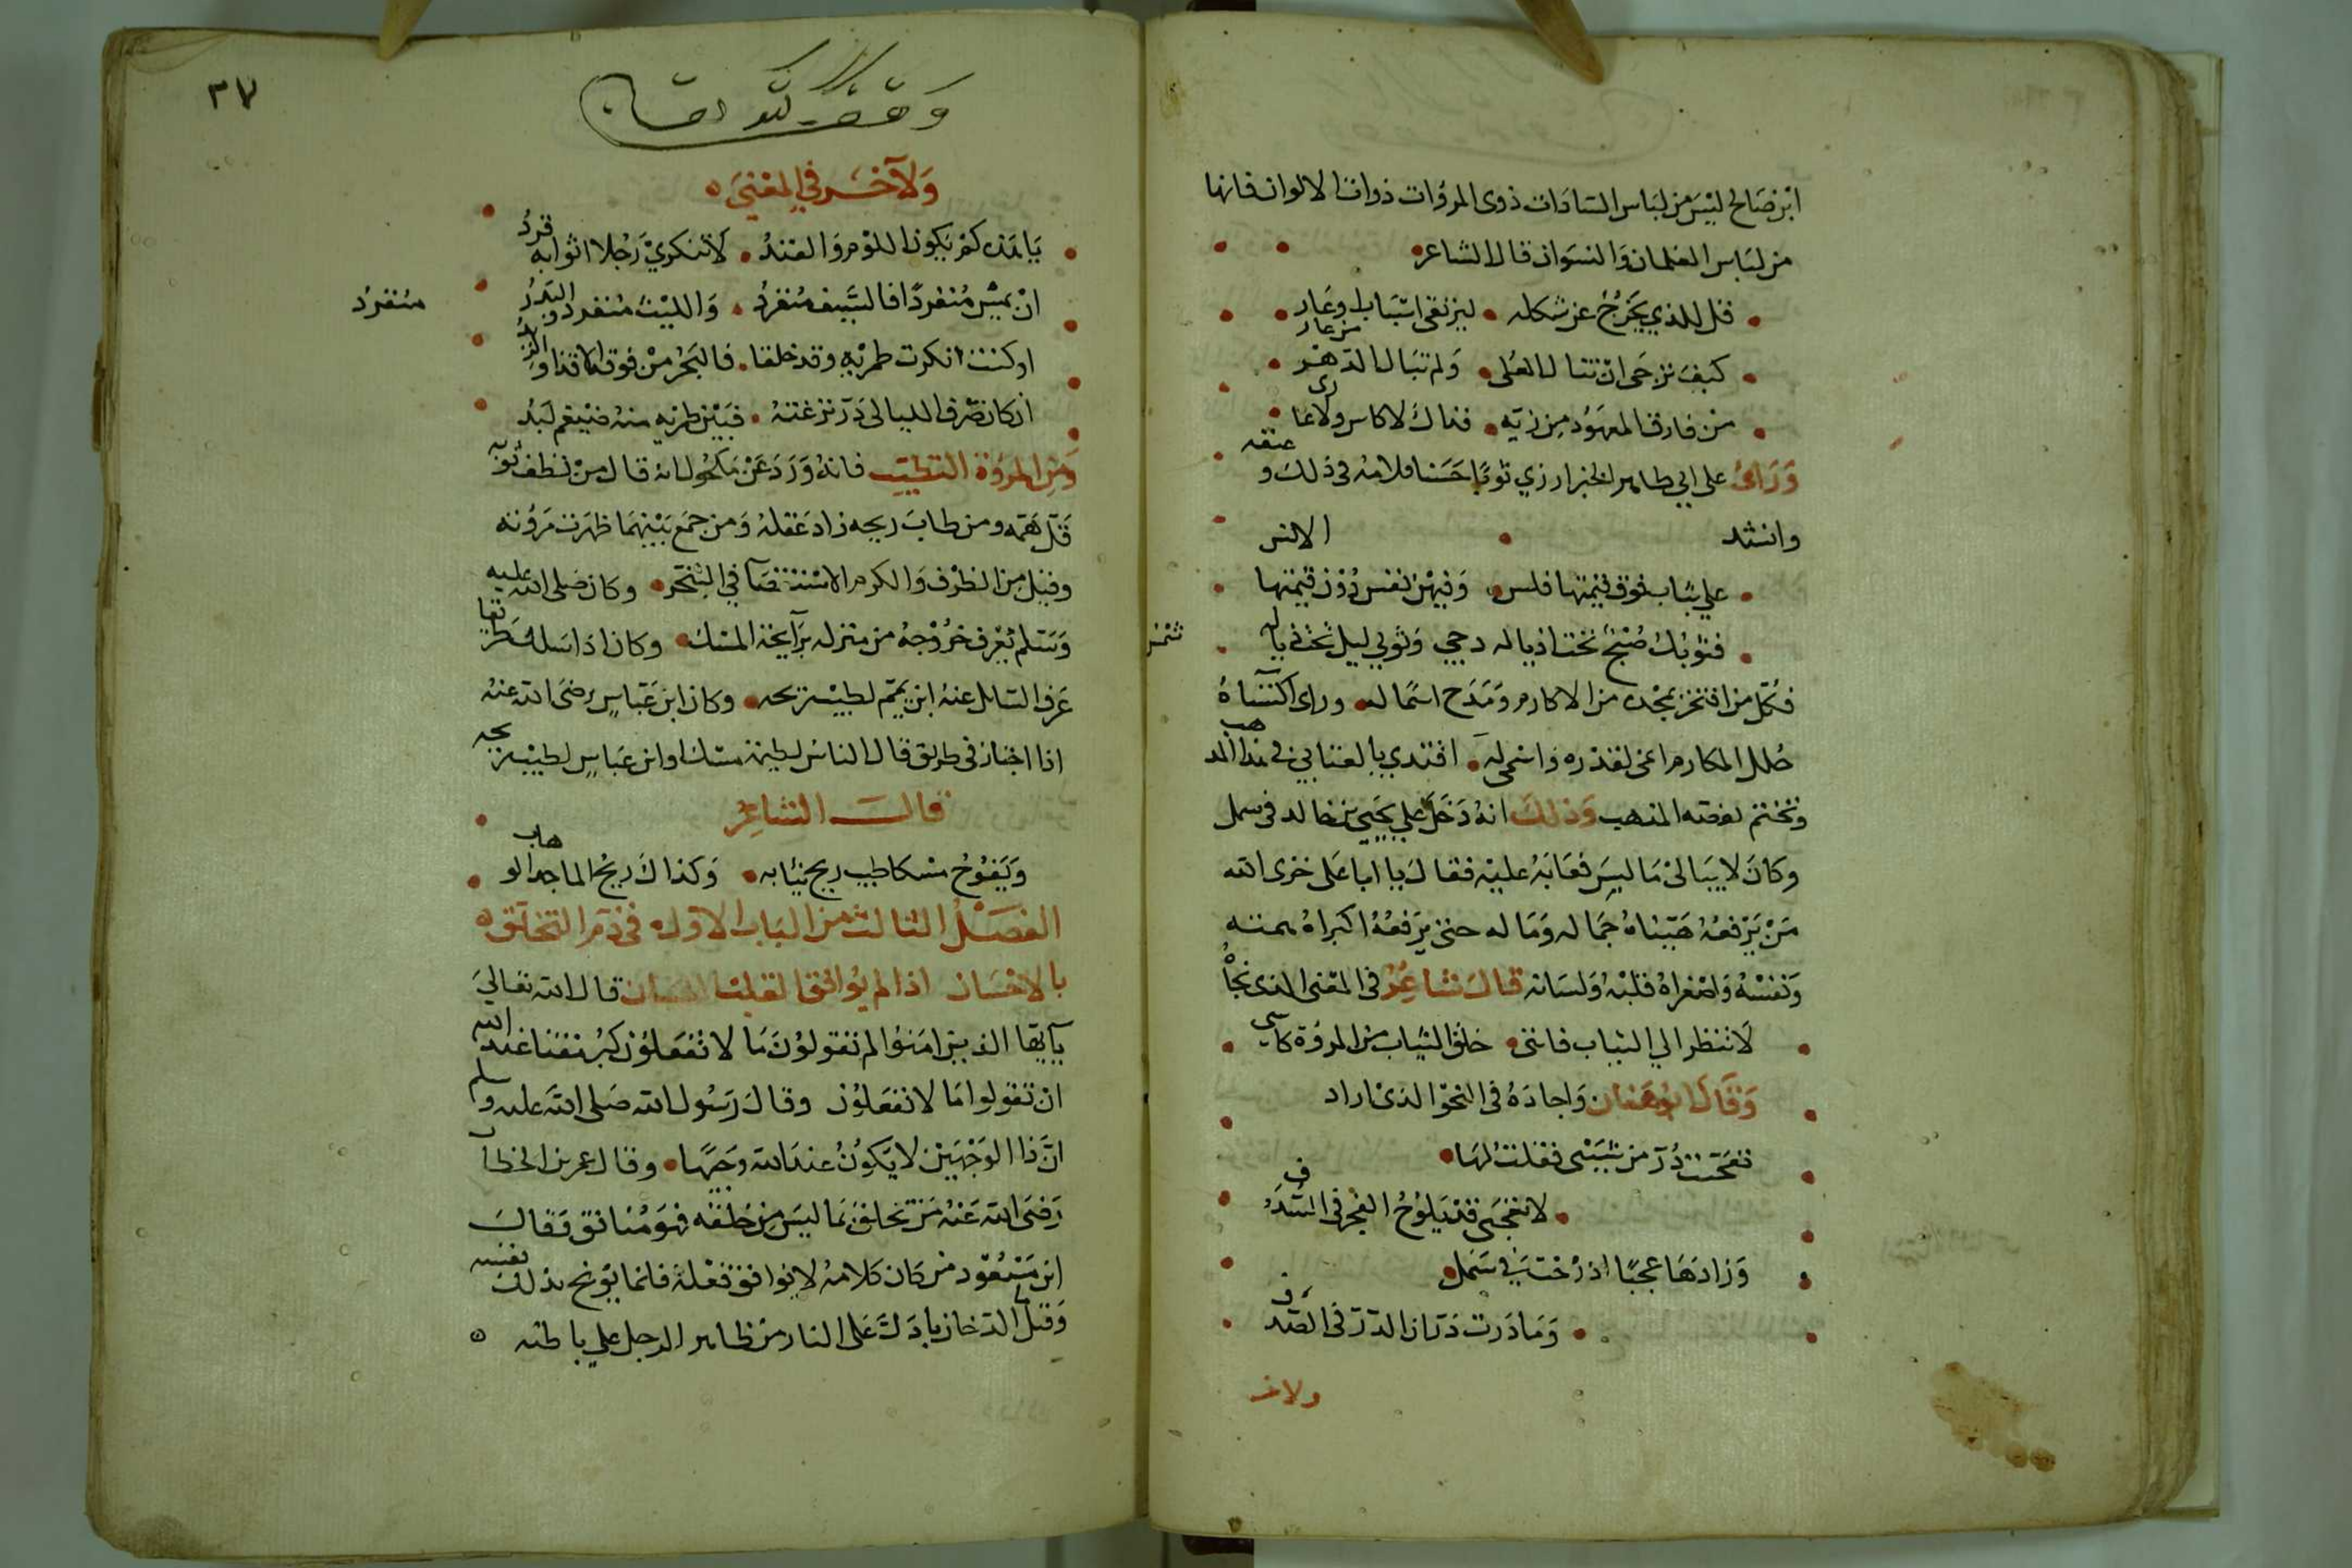 ابن صالح ليس من لباس السادات ذوى المروّات ذوات الالوان فانها
من لباس الغلمان والنسوان قال الشاعر
قل للذي يخرج عن شكله ليرتقى اسباب اوعار من عار
كيف ترجى ان تنال العلى ولم تبال الدهر
من فارق المعهود من زيّه فذاك لا كاس ولا عارى
وراى على ابي طاهر الخبزارزي ثوبًا حسنا فلامه فى ذلك و عنقه
وانشد الانس
علي ثياب فوق قيمتها فلس وفيهن نفس دون قيمتها
فثوبك صبح تحت اذياله دجى وثوبي ليل تحت اذياله شمس
فكل من افتخر بمجده من الاكارم ومدح اسماله وراى اكتساه
حلل المكارم اغنى لقدره واسمى له اقتدي بالعتابي فى هذا المذهب
ونختم بقصته المذهب وذلك انه دخل علي يحيى بن خالد فى سمل
وكان لا يبالى ما لبس فعابه عليه فقال يا ابا على خزى الله
من يرفعه هيئتاه جماله وماله حتى يرفعه اكبراه همته
ونفسه واصغراه قلبه ولسانه قال شاعر فى المعنى الذى نجاه
لا تنظر الي الثياب فاننى خلق الثياب من المروة كاسى
وقال واجاده فى النحو الذى اراد
تعجبت درّ من شيبى فقلت لها
لا تعجبى قد يلوح الفجر فى السدف
وزادها عجبًا اذ رحت فى سمل
وما درت درّ ان الدرّ فى الصدف
ولاخر
٣٧
وقف لله تعالى
ولآخر في المعنى
يا هذه كم يكون اللوم والفند لا تنكري رجلا اثوابه قدد
ان يمس منفردًا فالسيف منفرد والليث منفرد والبدر منفرد
او كنت انكرت طمريه وقد خلقا فالبحر من فوقه الاقذاء والزبد
ان كان صرف الليالى رزغته فبين طمريه منه ضيغم لبد
ومن المروة التطيب فانه ورد عن مكحول انه قال من نظف ثوبه
قل همه ومن طاب ريحه زاد عقله ومن جمع بينهما ظهرت مروّته
وقيل من الظرف والكرم الاستقصآ في التبخر وكان صلى الله عليه
وسلم يعرف خروجه من منزله برايحة المسك وكان اذا سلك طريقا
عرف السايل عنه اين يمم لطيب ريحه وكان ابن عباس رضى الله عنه
اذا اجتاز فى طريق قال الناس لطيمة مسك او ابن عباس لطيب ريحه
قال الشاعر
ويفوح مسكا طيب ريح ثيابه وكذاك ريح الماجد الوهاب
الفصل الثالث من الباب الاول فى ذم التخلق
بالاحسان اذا لم يوافق القلب اللسان قال الله تعالى
يآيها الذين امنوا لم تقولون ما لا تفعلون كبر مقتا عند الله
ان تقولوا ما لا تفعلون وقال رسول الله صلى الله عليه وسلم
انّ ذا الوجهين لا يكون عند الله وجيهًا وقال عمر بن الخطاب
رضى الله عنه من تخلق بما ليس من خلقه فهو منافق وقال
ابن مسعود من كان كلامه لا يوافق فعله فانما يوبخ بذلك نفسه
وقيل الدخان بادل على النار من ظاهر الرجل علي باطنه